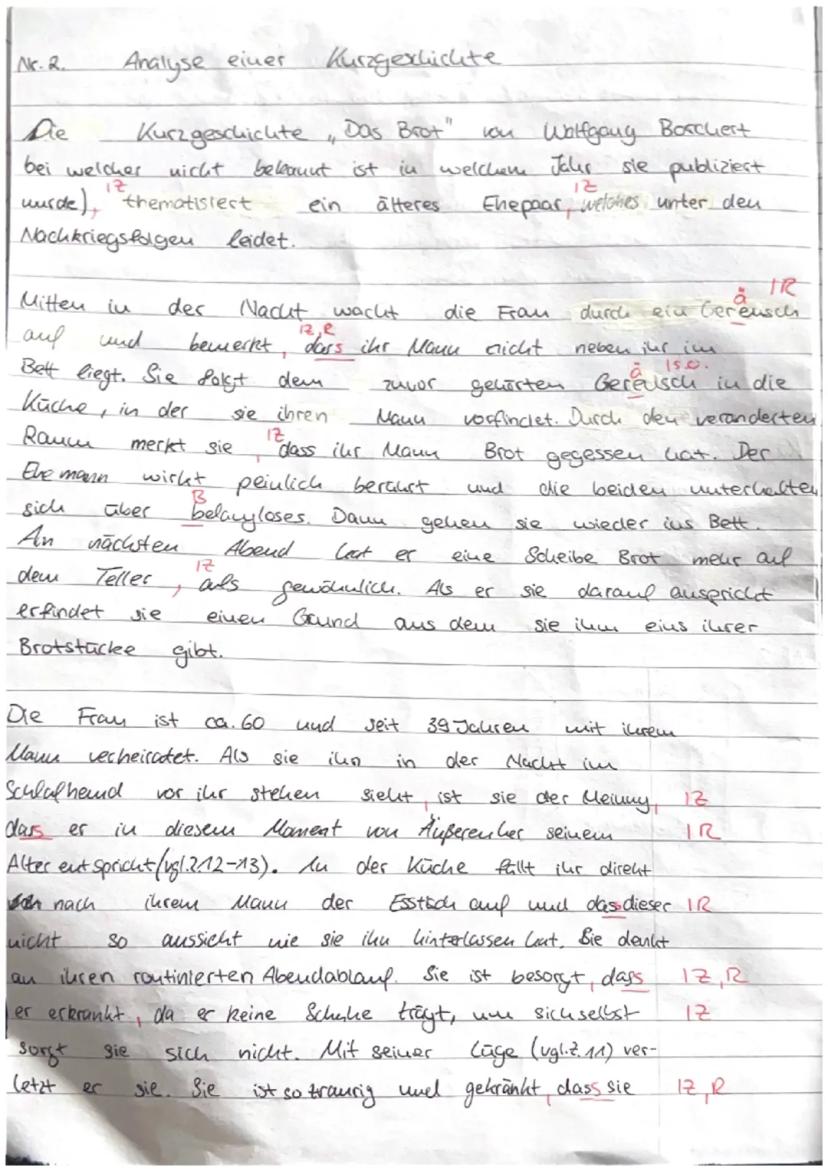 Nr. 2. Analyse einer Kurzgeschichte
Die Kurzgeschichte „Das Brot" von Wolfgang Borchert
bei welcher nicht bekannt ist in welchem Jahr sie publiziert
IZ IZ
wurde), thematisiert ein älteres Ehepaar, welches unter den
Nachkriegsfolgen leidet.
ä IR
Mitten in der Nacht wacht die Frau durch ein Gereusch
IZ,R
auf und bemerkt, dass ihr Mann nicht neben ihr im
ä Is.o.
Bett liegt. Sie folgt dem zuvor gehörten Gereusch in die
Küche, in der sie ihren Mann vorfindet. Durch den veränderten
IZ
Raum merkt sie, dass ihr Mann Brot gegessen hat. Der
Ehemann wirkt peinlich berührt und die beiden unterhalten
B
sich über belangloses. Dann gehen sie wieder ins Bett.
An nächsten Abend hat er eine Scheibe Brot mehr auf
IZ
dem Teller, als gewöhnlich. Als er sie darauf anspricht
erfindet sie einen Grund aus dem sie ihm eins ihrer
Brotstücke gibt.
Die Frau ist ca. 60 und seit 39 Jahren mit ihrem
Mann verheiratet. Als sie ihn in der Nacht im
Schlafhemd vor ihr stehen sieht, ist sie der Meinung, IZ
dass er in diesem Moment von Äußeren her seinem IR
Alter entspricht (vgl. Z. 12-13). In der Küche fällt ihr direkt
nach ihrem Mann der Esstisch auf und dass dieser IR
nicht so aussieht wie sie ihn hinterlassen hat. Sie denkt
an ihren routinierten Abendablauf. Sie ist besorgt, dass IZ,R
er erkrankt, da er keine Schuhe trägt, um sich selbst IZ
sorgt sie sich nicht. Mit seiner Lüge (vgl. Z. 11) ver-
letzt er sie. Sie ist so traurig und gekränkt, dass sie IZ,R